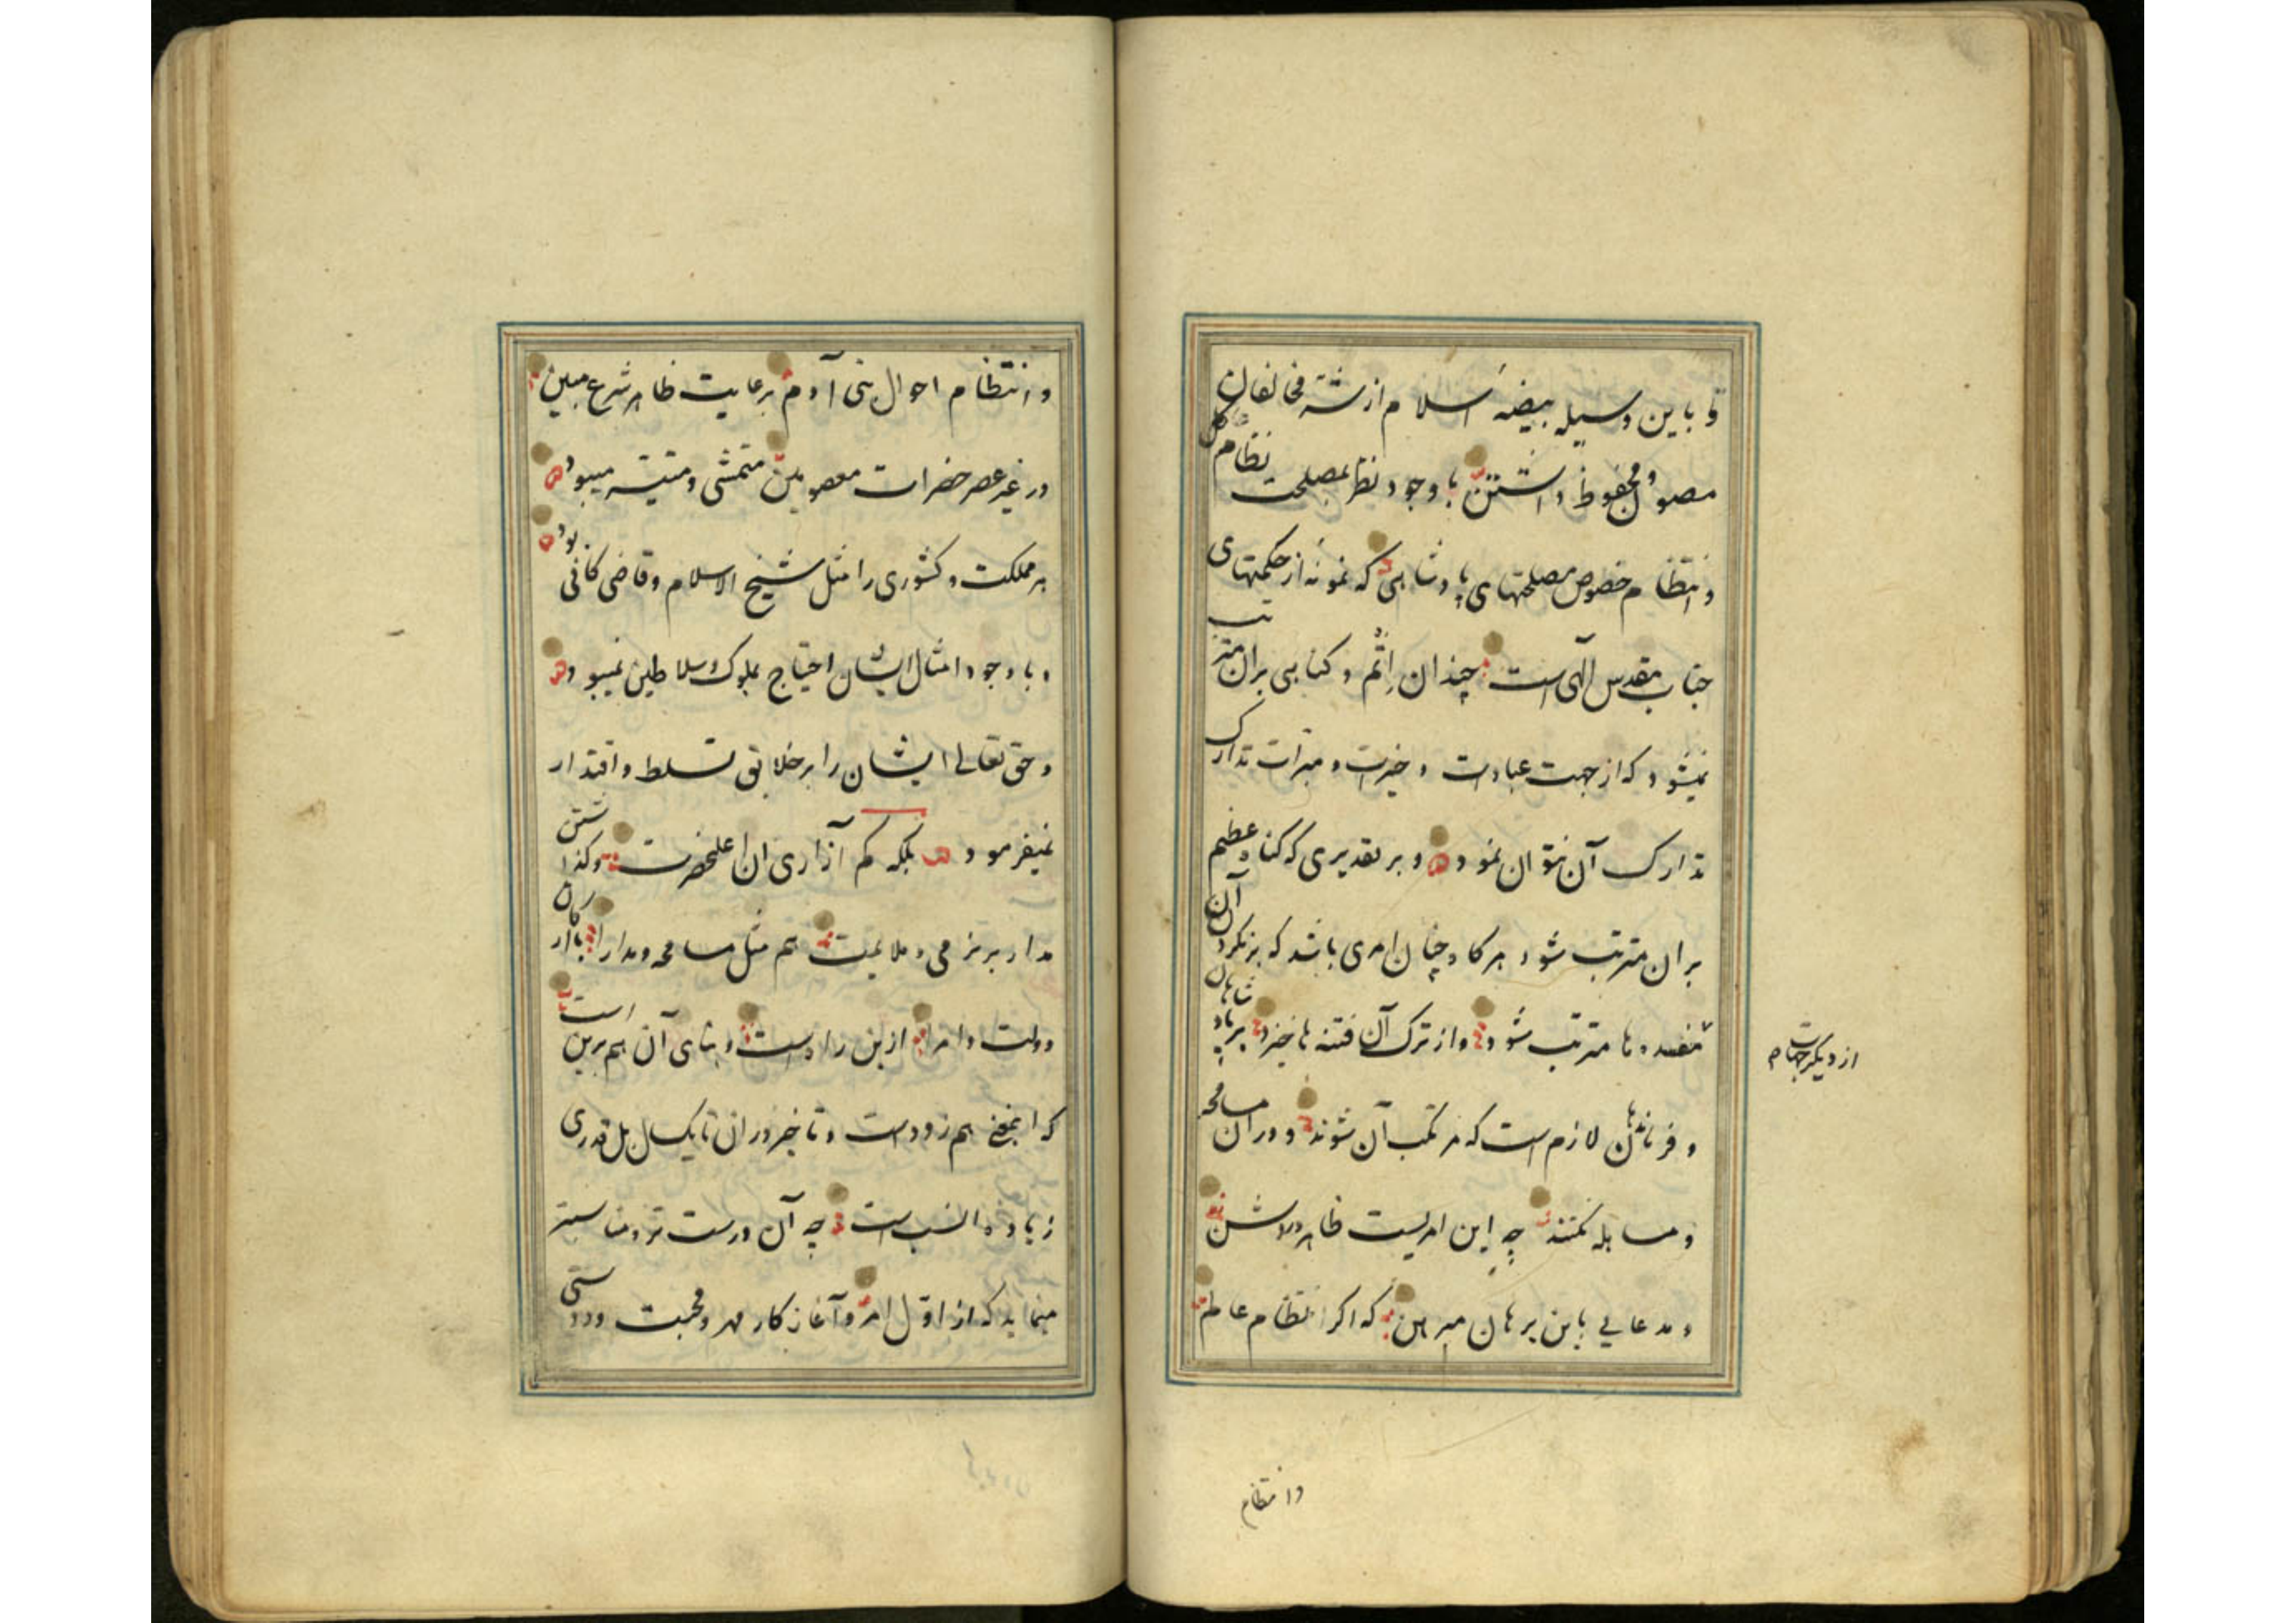 و باین وسیله بیضهٔ اسلام از شر مخالفان
مصون و محفوظ داشتن با وجود نظر بمصلحت نظام کل
و انتظام خصوص مصلحتهای پادشاهی که نمونه از حکمتهای
جناب مقدس الهی است چندان اثم و کناهی بران مترتب
نمیشود که از جهت عبادت و خیرات و مبرات تدارک
تدارک آن نتوان نمود و بر تقدیری که کناه عظیم
بران مترتب شود هرکاه چنان امری باشد که بر نکردن آن
مفسده ها مترتب شود و از ترک آن فتنه ها خیزد بر پادشاهان
از دیکر جهات هم
و فرماندهان لازم است که مرتکب آن شوند و دران مسامحه
و مساهله نکنند چه این امریست ظاهر و روشن
و مدعایی باین برهان مبرهن که اکر انتظام عالم
و انتظام
و انتظام احوال بنی آدم برعایت ظاهر شرع مبین
در غیر عصر حضرات معصومین متمشی و متیسر میبود
هر مملکت و کشوری را مثل شیخ الاسلام و قاضی کافی بود
و با وجود امثال ایشان احتیاج بملوک و سلاطین نمیبود
و حق تعالی ایشان را بر خلایق تسلط و اقتدار
نمیفرمود بلکه کم آزاری ان اعلیحضرت و کذاشتن
مدار بر نرمی و ملایمت هم مثل مسامحه و مدارا با ارکان
دولت و امرا ازین راه است و بنای آن هم برین است
که اینمعنی هم زود است و تاخیر دران تا یکسال بل قدری
زیاده انسب است چه آن درست تر و مناسبتر
مینماید که از اول امر و آغاز کار مهر و محبت و دوستی